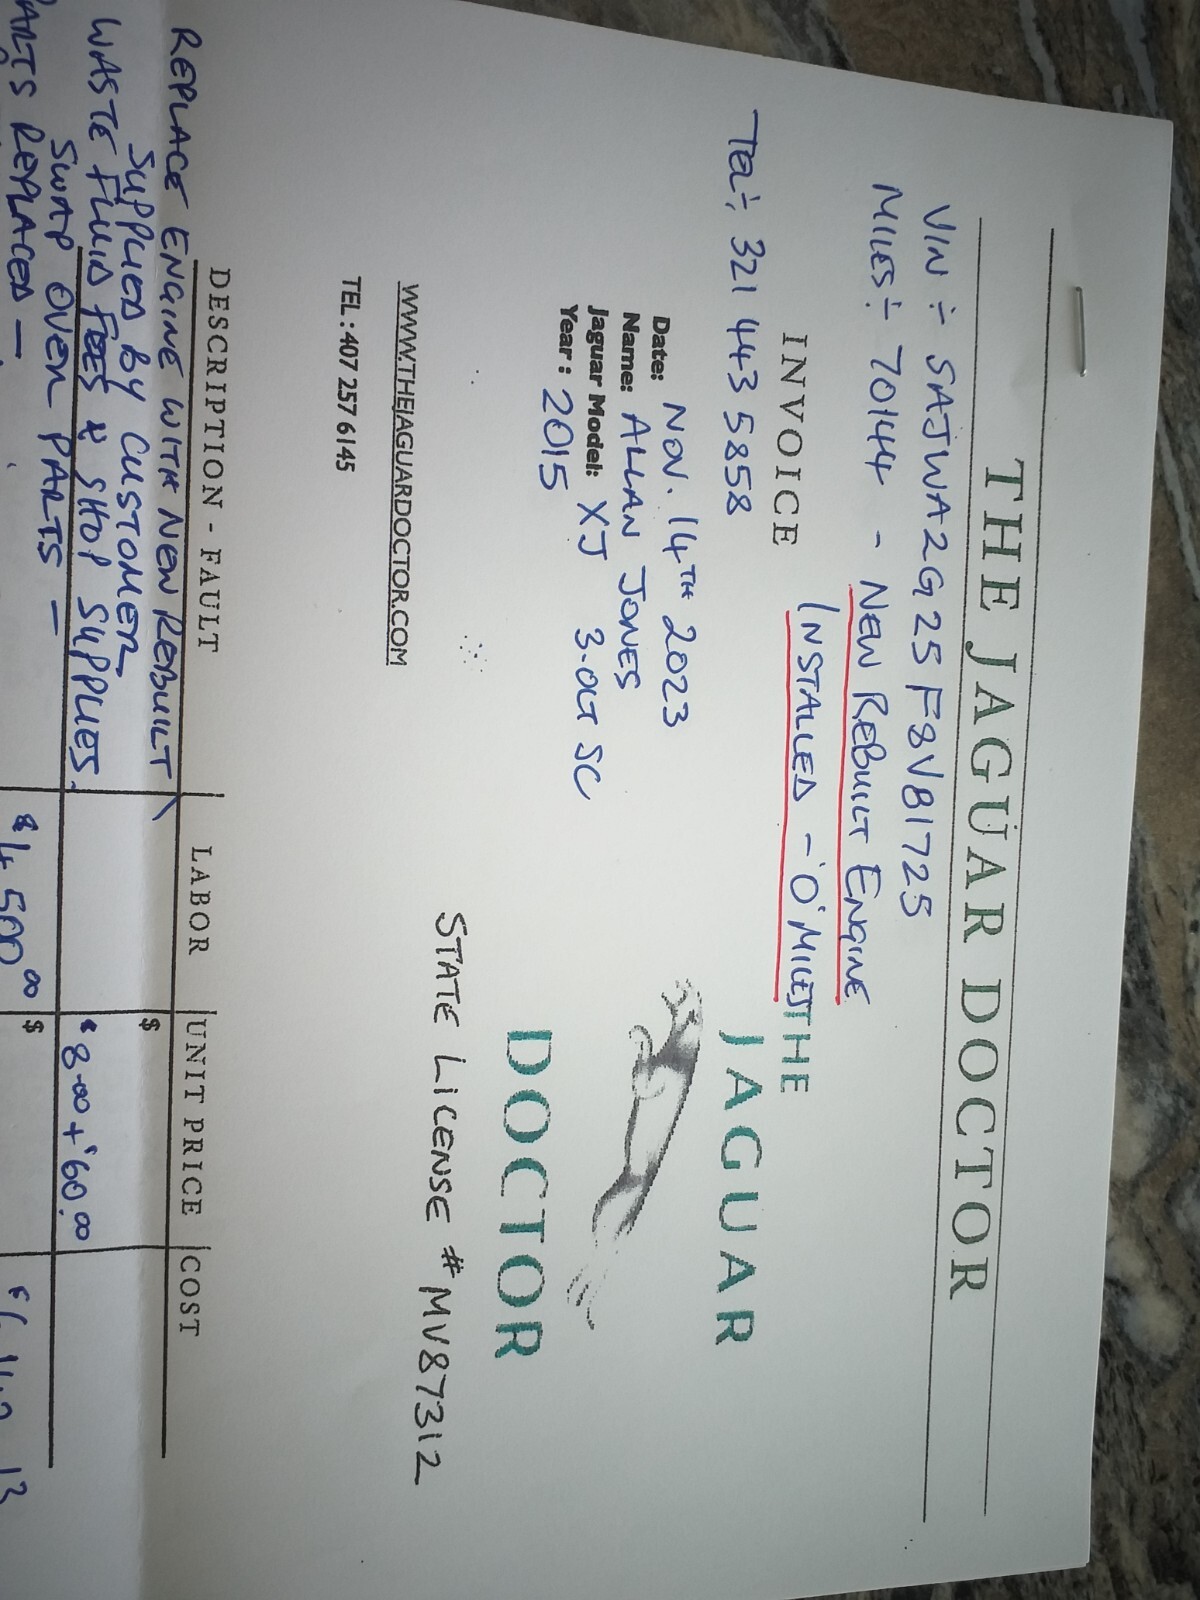 THE JAGUAR DOCTOR
VIN ÷ SAJWA2G25F8V81725
MILES ÷ 70144 - NEW REBUILT ENGINE
INSTALLED - 'O' MILES
INVOICE
TEL ÷ 321 443 5858
THE
JAGUAR
DOCTOR
Date: NOV. 14TH 2023
Name: ALLAN JONES
Jaguar Model: XJ 3.0LT SC
Year : 2015
STATE LICENSE # MV87312
WWW.THEJAGUARDOCTOR.COM
TEL : 407 257 6145
DESCRIPTION - FAULT LABOR UNIT PRICE COST
REPLACE ENGINE WITH NEW REBUILT $
SUPPLIED BY CUSTOMER
WASTE FLUID FEES & SHOP SUPPLIES. $8.00 + $60.00
SWAP OVER PARTS —
PARTS REPLACED — $4500.00 $